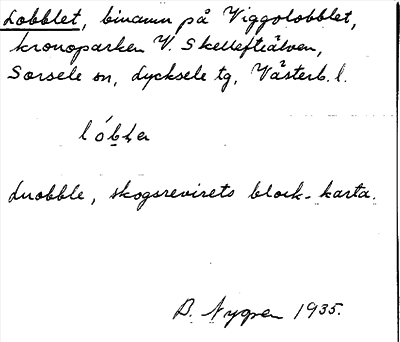 Lobblet, binamn på Viggolobblet,
kronoparken V. Skellefteälven,
Sorsele sn, Lycksele tg, Västerb. l.
lób̥ḷer
Luobble, skogsrevirets block-karta.
B. Nygren 1935.